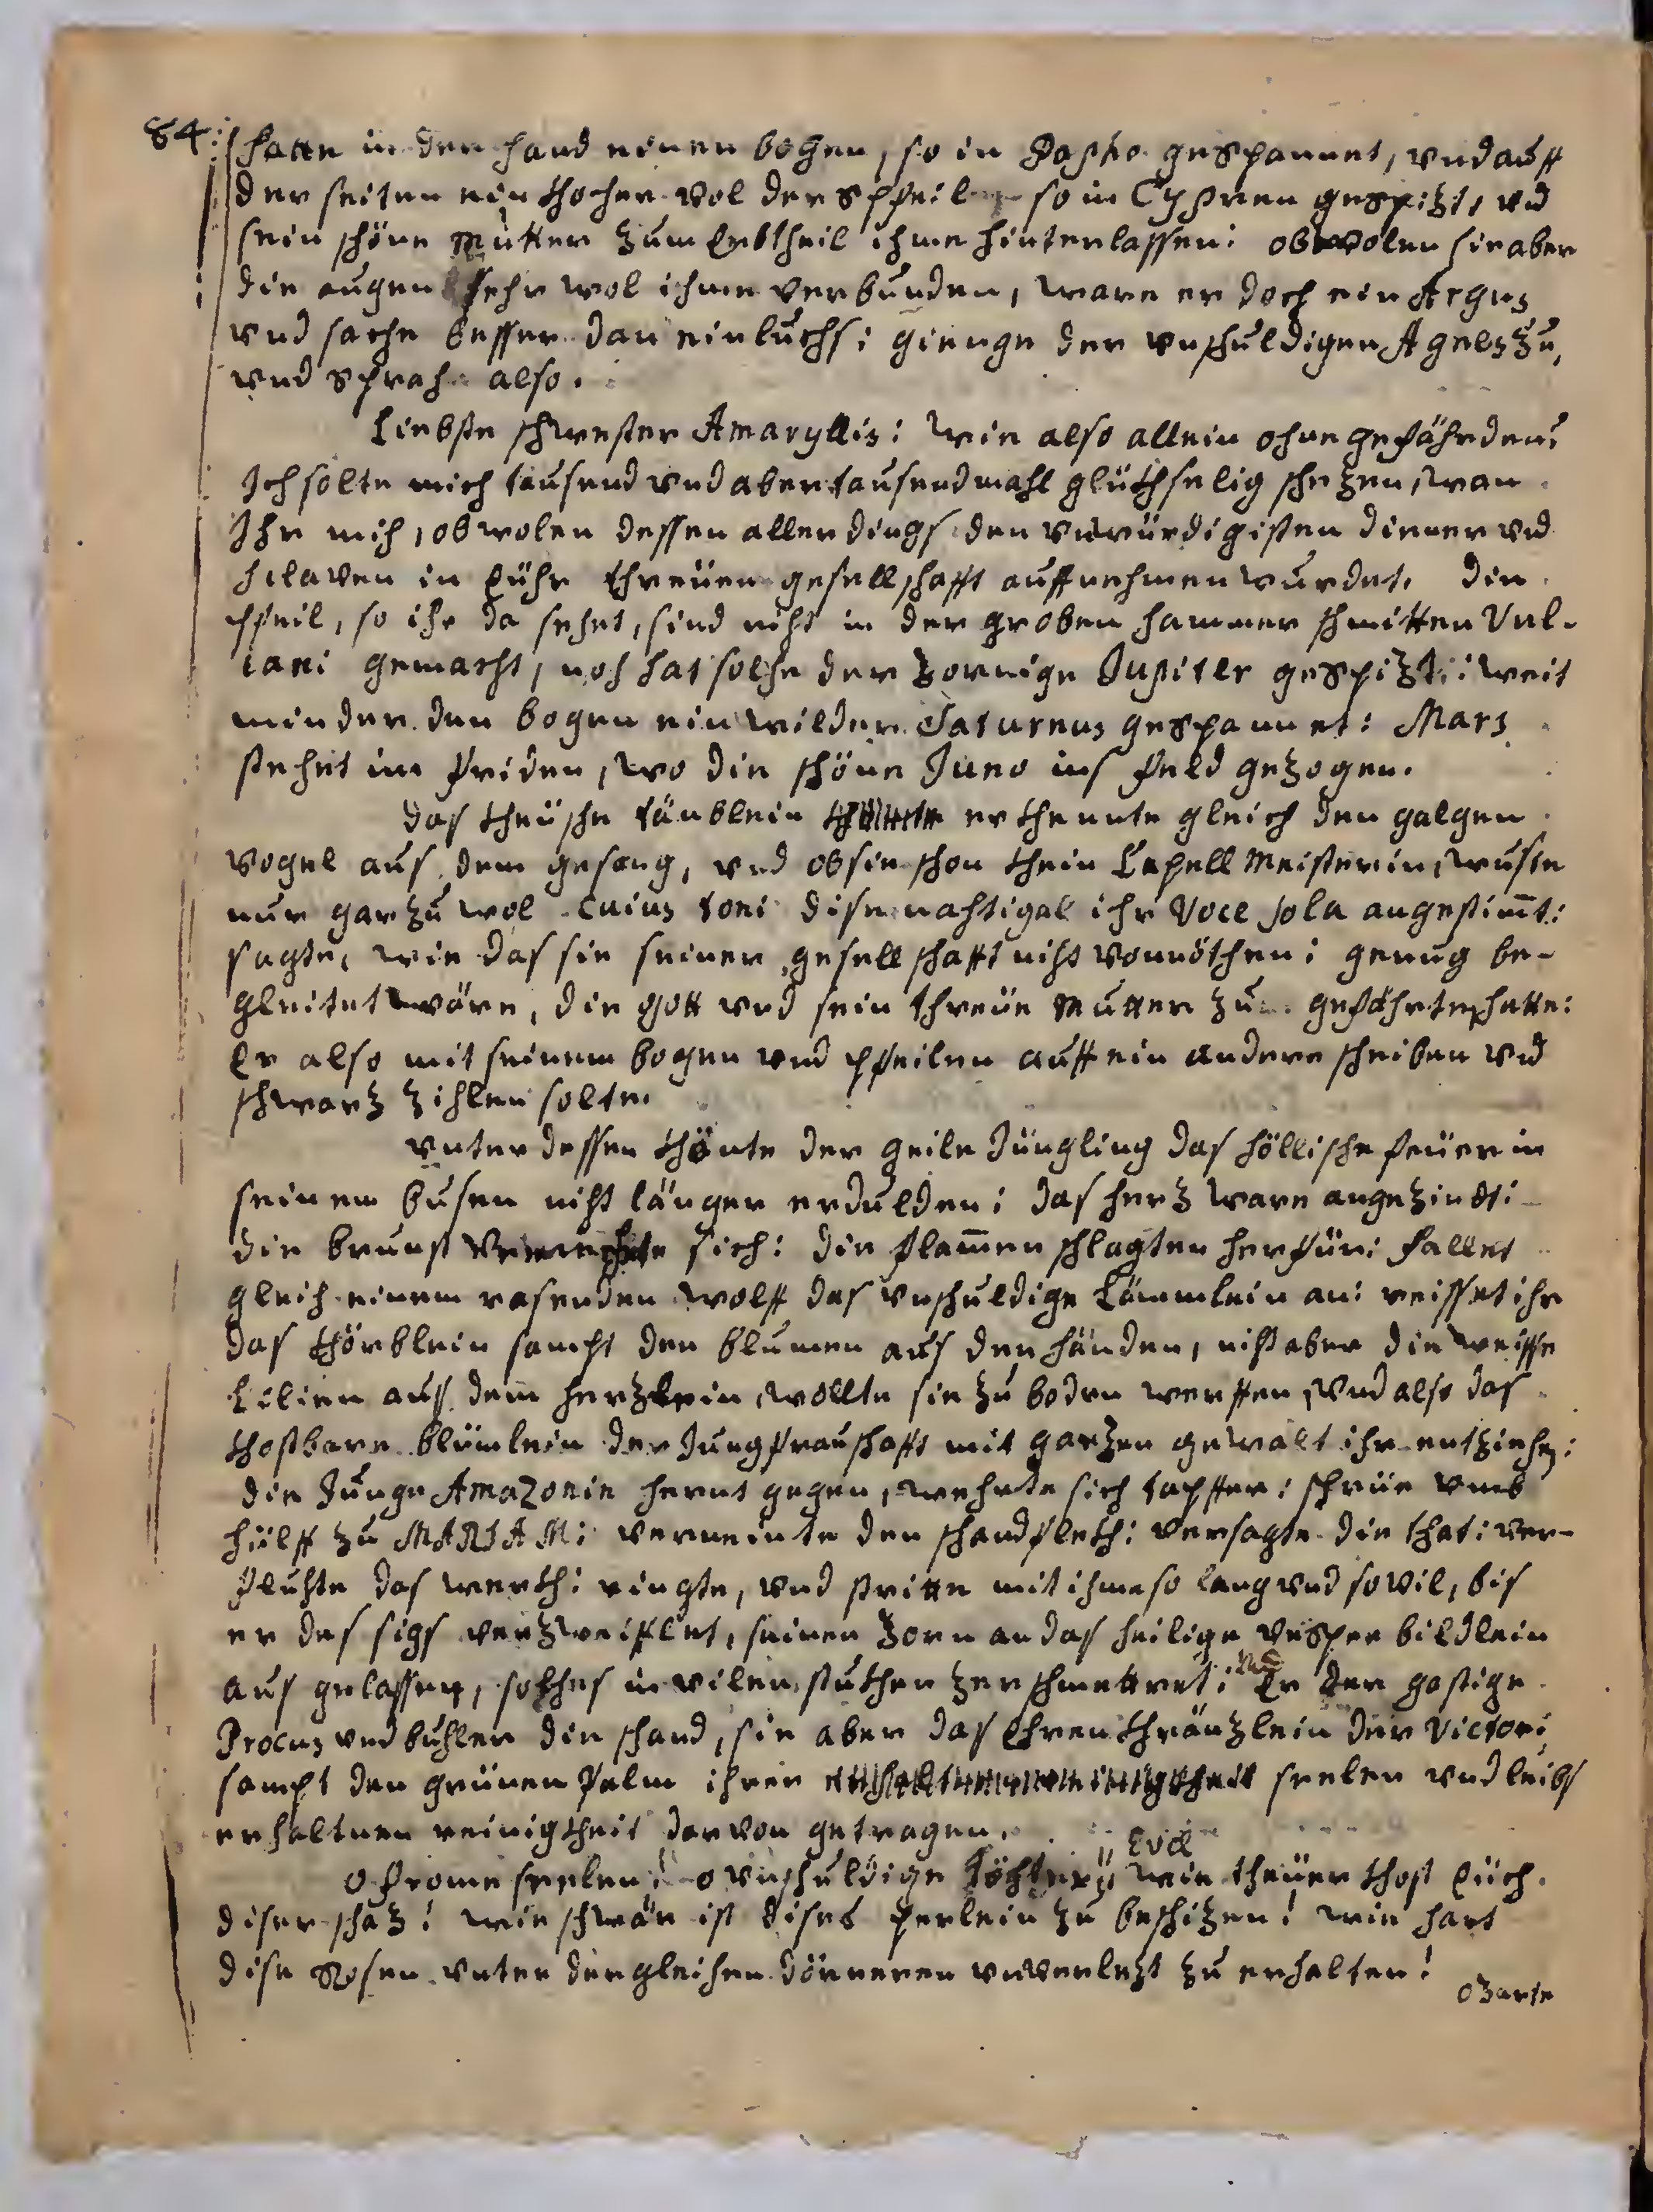 84:
hatte in der hand einen bogen, so in Papho gespannet, vnd auff
der seiten ein kocher vol der pfeil so in Cypren gespizt, vnd
sein schöne Mutter zum Erbtheil ihme hinterlassen: obwolen sie aber
die augen sehr wol ihme verbunden, ware er doch ein Argus
vnd sache besser dan ein luchs: gienge der vnschuldigen Agnes zu,
vnd sprach also.
Liebste schwester Amaryllis: wie also allein ohne gefährden?
Ich solte mich tausend vnd abertausendmahl glükhselig schezen, wan
Ihr mich, obwolen dessen allerdings den vnwürdigisten diener vnd
sclaven in Eühr threüen gesellschafft auffnehmen wurdet. die
pfeil, so ihr da sehet, sind nicht in der groben hammer schmitten Vul-
cani gemacht, noch hat solche der zornige Jupiter gespizt: weit
minder den bogen ein wilder Saturnus gespannet: Mars
stehet im friden, wo die schöne Juno ins feld gezogen.
das kheüsche täublein erkhennte gleich den galgen
vogel aus dem gesang, vnd ob sie schon khein Capell Meisterin, wuste
nur gar zu wol cuius toni dise nachtigal ihr Voce sola angestim̄t:
sagte, wie das sie seiner gesellschafft nicht vonnöthen: genug be-
gleitet wäre, die gott vnd sein threüe Mutter zu gefährten hette:
Er also mit seinem bogen vnd pfeilen auff ein andere scheiben vnd
schwarz zihlen solte.
vnter dessen khönte der geile Jüngling das höllische feüer in
seinem busen nicht länger erdulden: das herz ware angezindt:
die brunst vermehrte sich: die flam̄en schlagten herfür: fallet
gleich einem rasenden wolff das vnschuldige Lämmlein an: reisset ihr
das khörblein sampt den blumen aus den händen, nicht aber die weisse
Lilien aus dem herzlein, wollte sie zu boden werffen, vnd also das
khostbare blümlein der Jungfrauschafft mit ganzen gewalt ihr entziehen:
die Junge Amazonin hernt gegen, wehrte sich tapffer: schrüe vmb
hülff zu MARIAM: verneinte den schandflekh: versagte die that: ver-
fluchte das werkh: ringte, vnd stritte mit ihme so lang vnd so vil, bis
er des sigs verzweiflet, seinen zorn an das heilige vesper bildlein
aus gelassen, solches in vilen stukhen zerschmettret: vnd Er der gastige
Procus vnd buhler die schand, sie aber das Ehren khränzlein der victori,
sampt den grünen palm ihrer seelen vnd leibs
erhaltnen reinigkheit darvon getragen.
o frome seelen! o vnschuldige töchter Evæ! wie theüer khost Eüch
diser schaz! wie schwär ist dises perlein zu beschizen! wie hart
dise Rosen vnter dergleichen dörneren vnverlezt zu erhalten!
o zarte